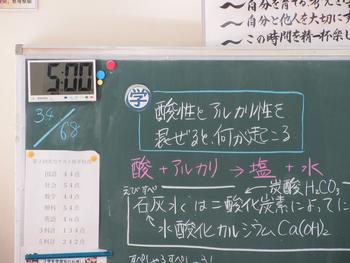 〜自分を育てる、考え
〜自分と他人を大切にす
〜この時間を精一杯楽し
5:00
34/68
学
酸性とアルカリ性を
混ぜると、何が起こる
酸 + アルカリ → 塩 + 水
えび すぺ
炭酸 H₂CO₃
石灰水は二酸化炭素によってに
水酸化カルシウム Ca(OH)₂
国語 44点
社会 54点
数学 44点
理科 51点
英語 46点
3科計 134点
5科計 242点